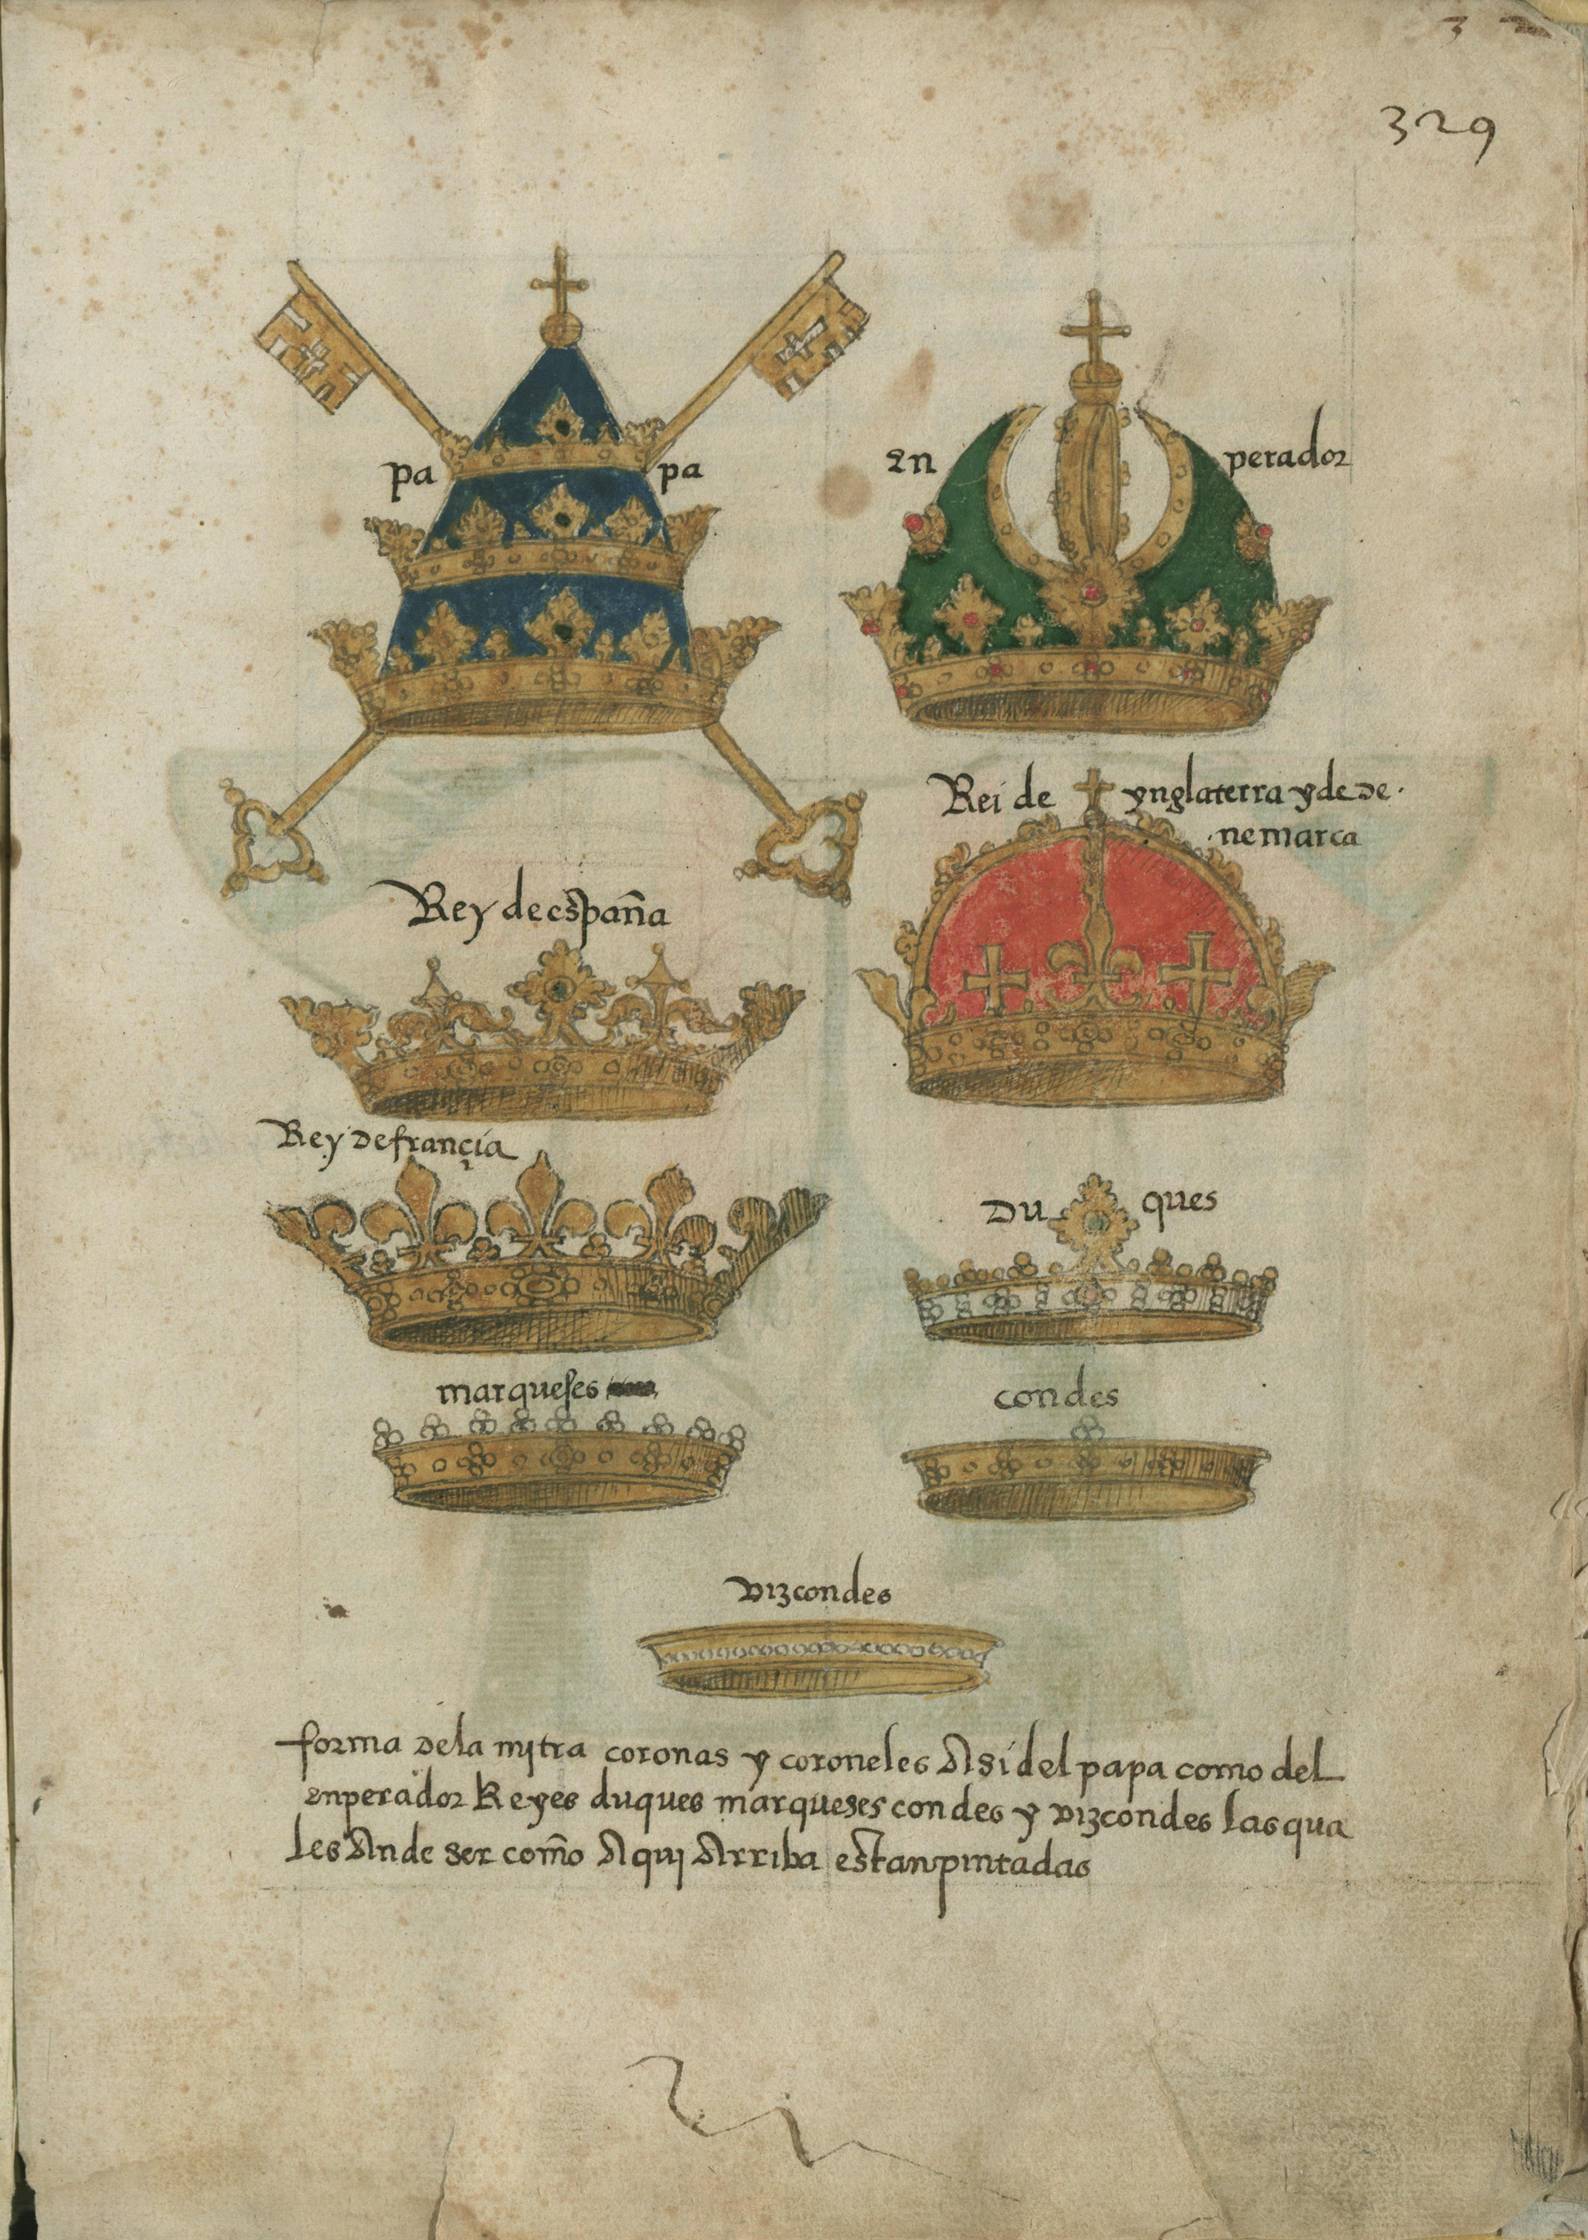 329
papa
enperador
Rei de ynglaterra y de de
nemarca
Rey de españa
Rey de françia
Duques
marqueses
condes
vizcondes
forma de la mitra coronas y coroneles Asi del papa como del
enperador Reyes duques marqueses condes y vizcondes las qua
les An de ser como Aqui Arriba estan pintadas